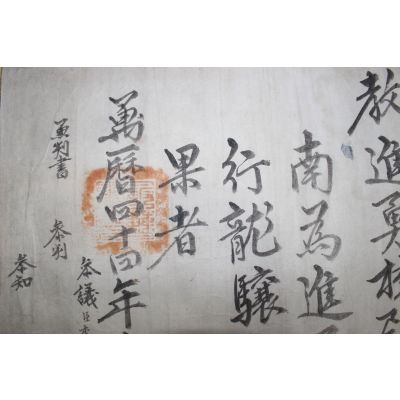 教進勇校
南為進
行龍驤
果者
萬曆四十四年
參議臣
參判
兼判書
參知